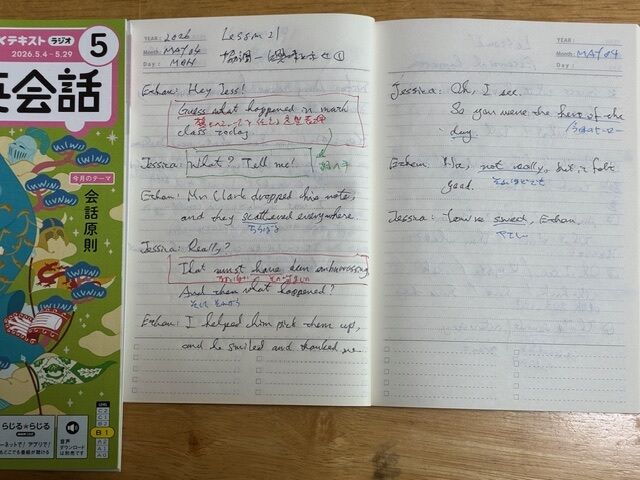 テキスト ラジオ
2026.5.4~5.29
5
英会話
今月のテーマ
会話原則
らじる★らじる
B1
音声
ダウンロード
YEAR: 2026 Lesson 21
Month: MAY 04
Day: MON
協調
Ethan: Hey Jess!
Guess what happened in math
class today.
Jessica: What? Tell me!
Ethan: Mr Clark dropped his notes,
and they scattered everywhere.
Jessica: Really?
That must have been embarrassing.
And then what happened?
Ethan: I helped him pick them up,
and he smiled and thanked me.
YEAR:
Month: MAY 04
Day:
Jessica: Oh, I see.
So you were the hero of the
day.
Ethan: No, not really, but it felt
good.
それほどでも
Jessica: You're sweet, Ethan.
やさしい